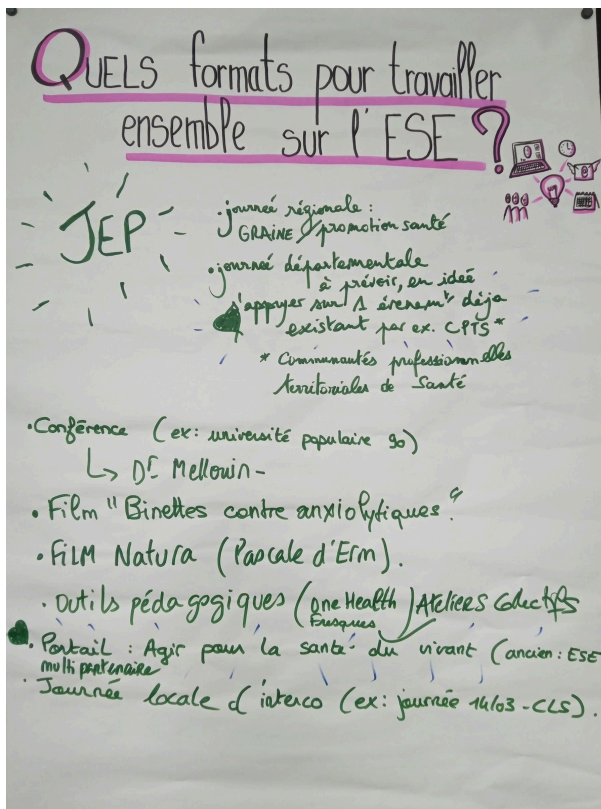 QUELS formats pour travailler
ensemble sur l'ESE ?
JEP
• journée régionale :
GRAINE / promotion santé
• journée départementale
à prévoir, en idée
s'appuyer sur 1 évenemt déja
existant par ex. CPTS *
* Communautés professionnelles
territoriales de Santé
• Conférence (ex: université populaire 90)
↳ Dr Mellouin -
• Film "Binettes contre anxiolytiques"
• FILM Natura (Pascale d'Erm).
• Outils pédagogiques (one Health) Ateliers Colectifs
Fresques
• Portail : Agir pour la santé du vivant (ancien : ESE
multi partenaire
• Journée locale d'interco (ex: journée 14/03 - CLS).